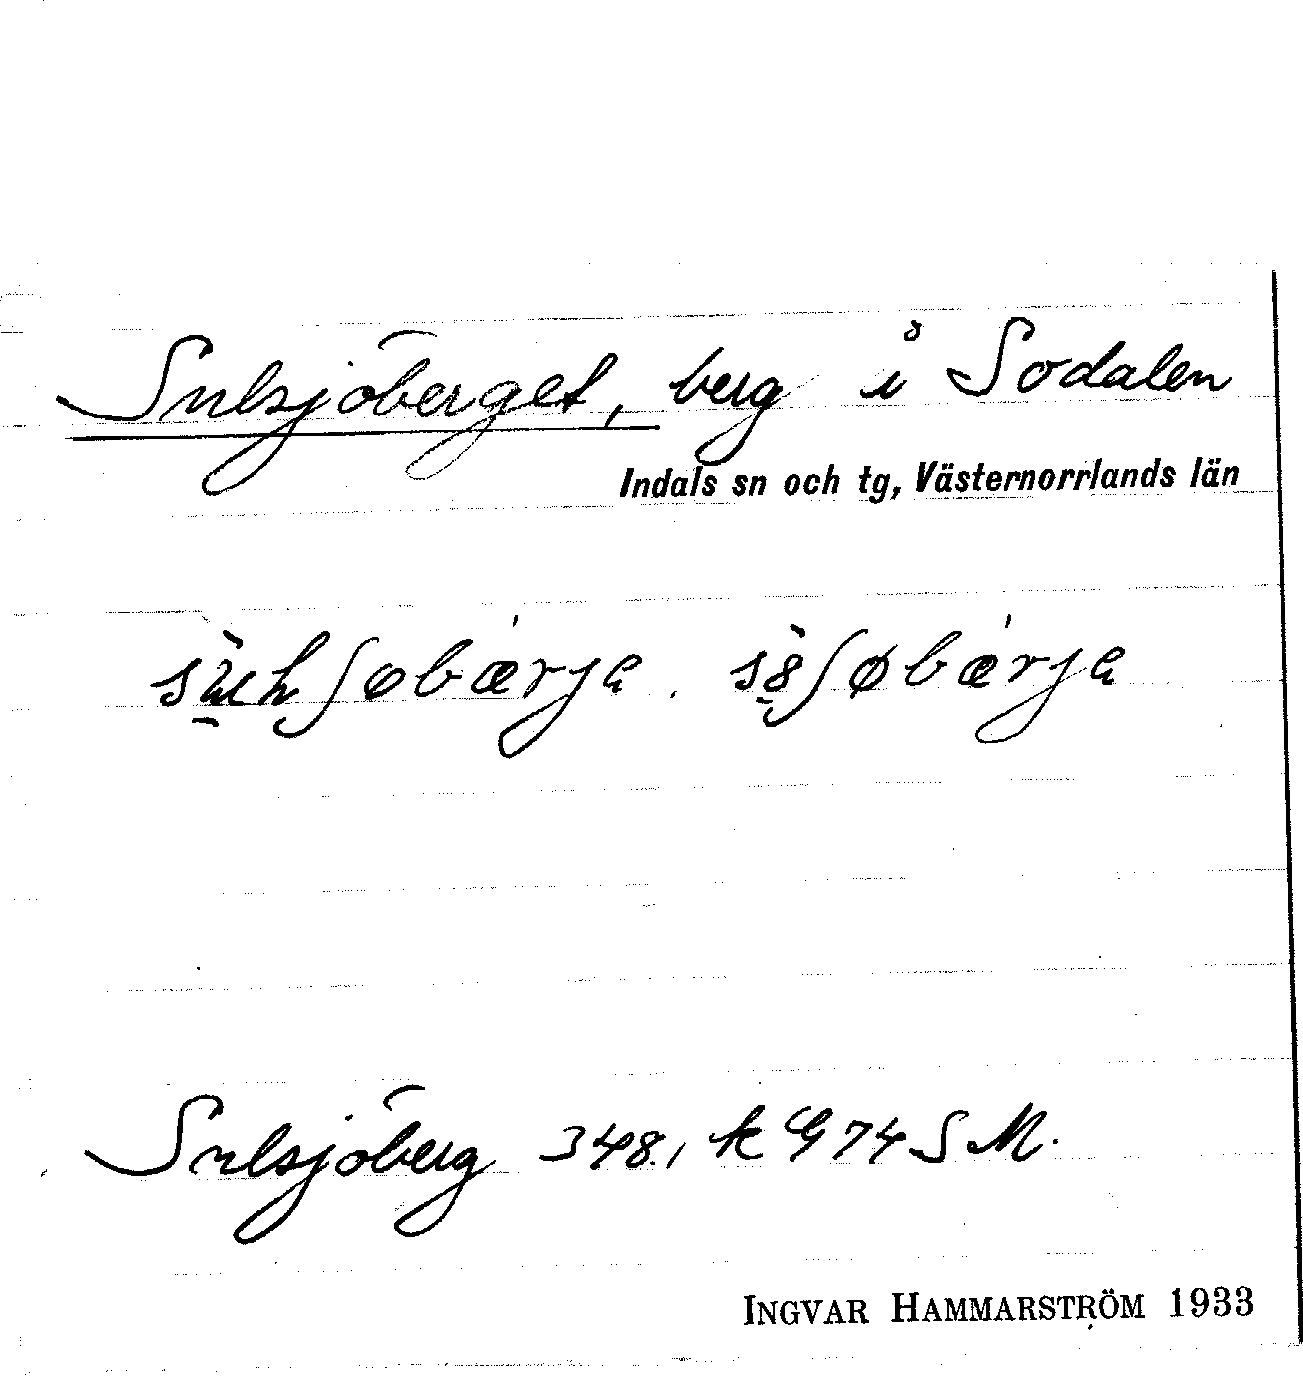 Sulsjöberget, berg i Sodalen
Indals sn och tg, Västernorrlands län
Sulsjöberg 348, k G 74 SM.
INGVAR HAMMARSTRÖM 1933